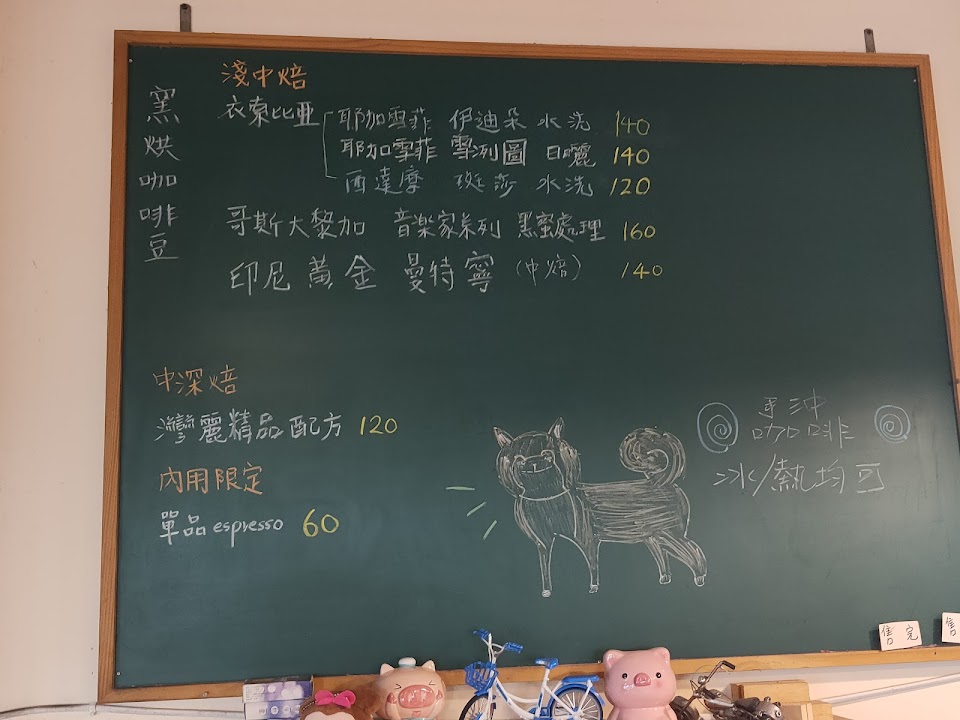 窯烘咖啡豆
淺中焙
衣索比亞 耶加雪菲 伊迪朵 水洗 140
耶加雪菲 雪洌圖 日曬 140
西達摩 斑莎 水洗 120
哥斯大黎加 音樂家系列 黑蜜處理 160
印尼 黃金 曼特寧 (中焙) 140
中深焙
灣麗精品配方 120
內用限定
單品 espresso 60
手沖
咖啡
冰/熱均可
售完
售